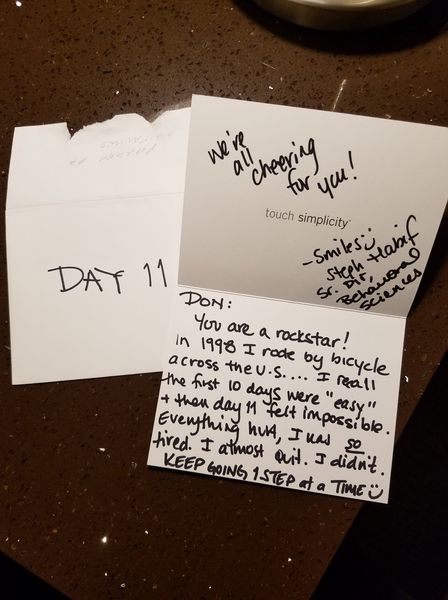 We're
all cheering
for you!
touch simplicity
- Smiles
Steph Habif
Sr. Dir,
Behavioral
Sciences
DAY 11
DON:
You are a rockstar!
in 1998 I rode by bicycle
across the U.S.... I recall
the first 10 days were "easy"
+ then day 11 felt impossible.
Everything hurt, I was so
tired. I almost quit. I didn't.
KEEP GOING, 1 STEP at a TIME